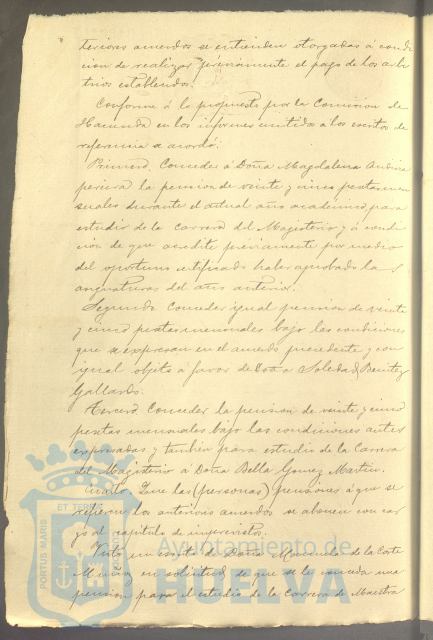 teriores acuerdos se entienden otorgadas á condi
cion de realizar previamente el pago de los arbi
trios establecidos.
Conforme á lo propuesto por la Comision de
Hacienda en los informes emitidos a los escritos de
referencia se acordó:
Primero. Conceder á Doña Magdalena
la pension de veinte y cinco pesetas men
suales durante el actual año académico, para
estudiar de la carrera del Magisterio y á condi
cion de que acredite previamente por medio
del oportuno certificado haber aprobado las
asignaturas del año anterior.
Segundo. Conceder igual pension de veinte
y cinco pesetas mensuales bajo las condiciones
que se expresan en el acuerdo precedente y con
igual objeto á favor de Doña Soledad Benitez
Gallardo.
Tercero. Conceder la pension de veinte y cinco
pesetas mensuales bajo las condiciones antes
expresadas y tambien para estudio de la Carrera
del Magisterio á Doña Bella Gomez Martin.
Cuarto. Que las (personas) pensiones á que se
refieren los anteriores acuerdos se abonen con car
go al capitulo de imprevistos.
Visto un escrito de Doña Manuela de la Corte
Muñoz en solicitud de que se le conceda una
pension para el estudio de la Carrera de Maestra
PORTUS MARIS
ET TERRAE
Ayuntamiento de
HUELVA